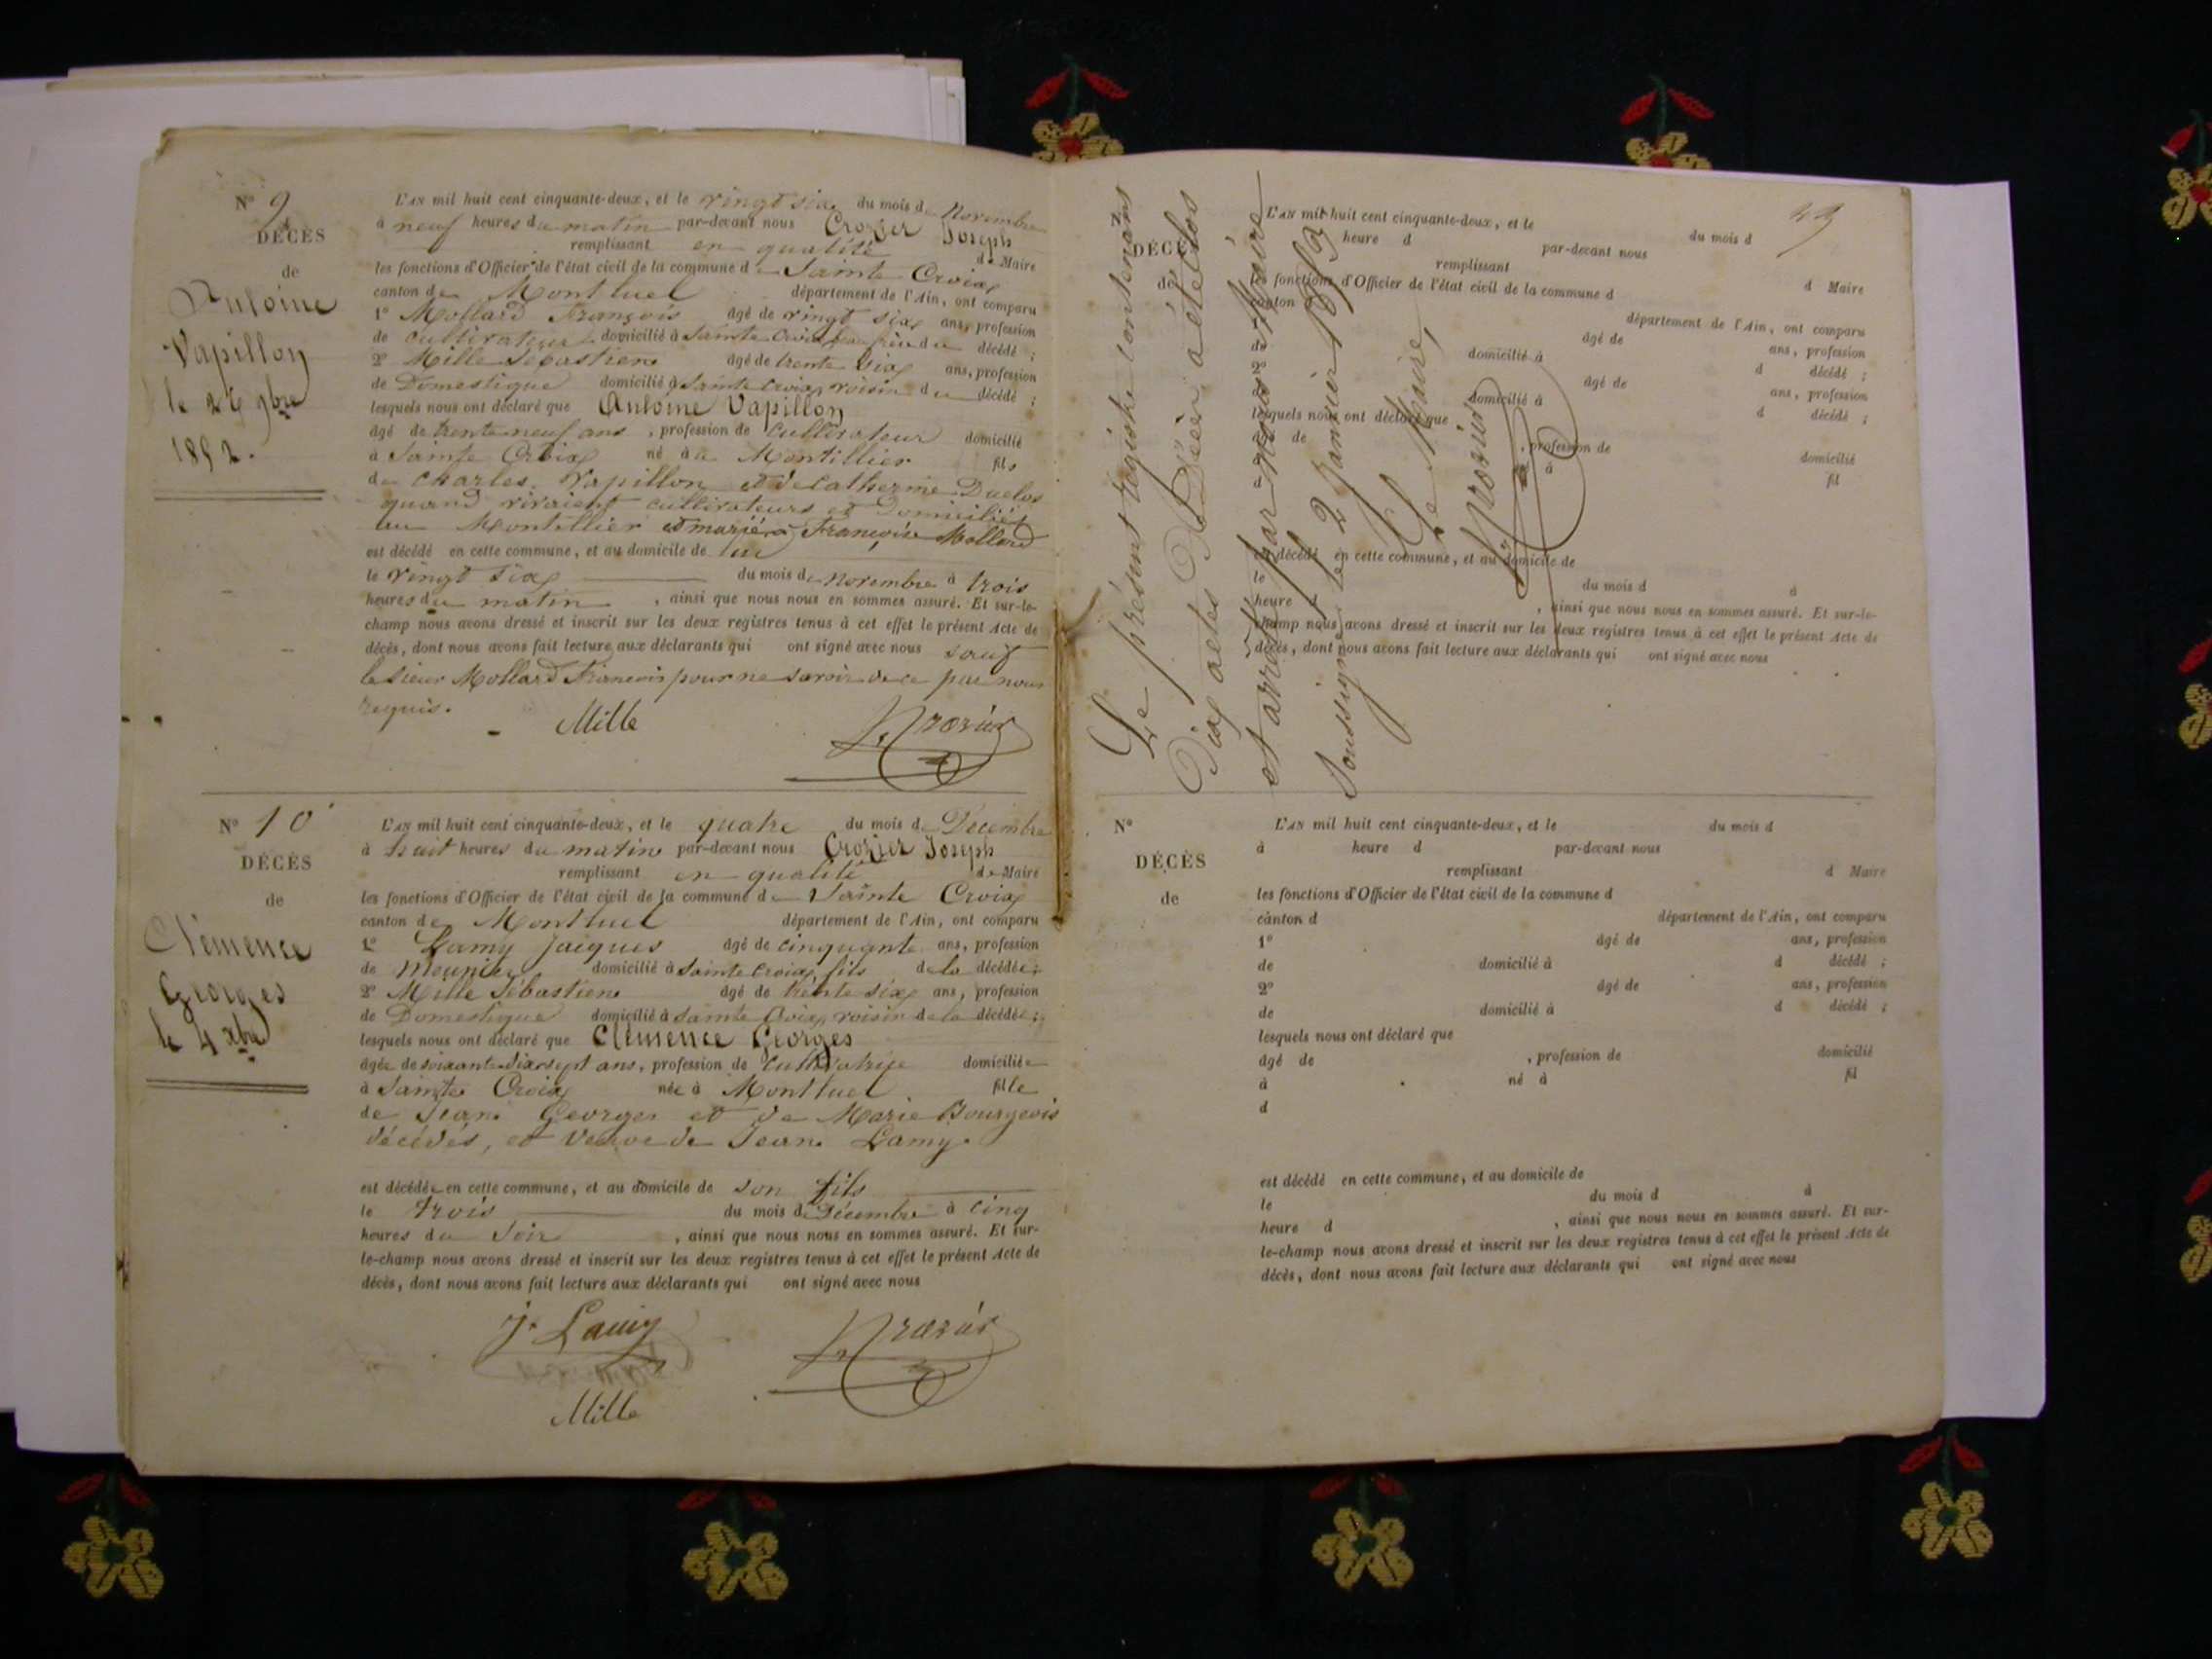 N° 9
DÉCÈS
de
Antoine
Vapillon
le 26 9bre
1852.
L'AN mil huit cent cinquante-deux, et le vingt six du mois de Novembre
à neuf heures du matin par-devant nous Crozier Joseph
remplissant en qualité de Maire
les fonctions d'Officier de l'état civil de la commune de Sainte Croix
canton de Montluel département de l'Ain, ont comparu
1° Mollard François âgé de vingt six ans, profession
de cultivateur domicilié à Sainte Croix du décédé ;
2° Mille Sébastien âgé de trente Six ans, profession
de Domestique domicilié à Sainte Croix voisin du décédé ;
lesquels nous ont déclaré que Antoine Vapillon
âgé de trente neuf ans, profession de Cultivateur domicilié
à Sainte Croix né au Montillier fils
de Charles Vapillon et de Catherine Duclos
quand vivaient cultivateurs et Domiciliés
au Montillier et marié à Françoise Mollard
est décédé en cette commune, et au domicile de lui
le vingt six du mois de novembre à trois
heures du matin, ainsi que nous nous en sommes assuré. Et sur-le-
champ nous avons dressé et inscrit sur les deux registres tenus à cet effet le présent Acte de
décès, dont nous avons fait lecture aux déclarants qui ont signé avec nous sauf
le sieur Mollard François pour ne savoir de ce par nous
requis.
Mille
N° 10
DÉCÈS
de
Clémence
Georges
le 4 xbre
L'AN mil huit cent cinquante-deux, et le quatre du mois de Décembre
à huit heures du matin par-devant nous Crozier Joseph
remplissant en qualité de Maire
les fonctions d'Officier de l'état civil de la commune de Sainte Croix
canton de Montluel département de l'Ain, ont comparu
1° Lamy Jacques âgé de cinquante ans, profession
de Meunier domicilié à Sainte Croix fils de la décédée ;
2° Mille Sébastien âgé de trente six ans, profession
de Domestique domicilié à Sainte Croix voisin de la décédée ;
lesquels nous ont déclaré que Clémence Georges
âgée de soixante dix sept ans, profession de Cultivatrice domiciliée
à Sainte Croix née à Montluel fille
de Jean Georges et de Marie Bourgeois
décédés, et veuve de Jean Lamy.
est décédée en cette commune, et au domicile de son fils
le trois du mois de Décembre à cinq
heures du Soir, ainsi que nous nous en sommes assuré. Et sur-
le-champ nous avons dressé et inscrit sur les deux registres tenus à cet effet le présent Acte de
décès, dont nous avons fait lecture aux déclarants qui ont signé avec nous
J. Lamy
Mille
Le présent Registre contenant
Dix actes de Décès a été clos
et arrêté par nous Maire
soussigné le 2 Janvier 1853
Le Maire,
DÉCÈS
de
L'AN mil huit cent cinquante-deux, et le du mois d
heure d par-devant nous
remplissant d Maire
les fonctions d'Officier de l'état civil de la commune d
canton d département de l'Ain, ont comparu
âgé de ans, profession
de domicilié à d décédé ;
2° âgé de ans, profession
de domicilié à d décédé ;
lesquels nous ont déclaré que
âgé de , profession de domicilié
à né à fil
est décédé en cette commune, et au domicile de
le du mois d à
heure d , ainsi que nous nous en sommes assuré. Et sur-le-
champ nous avons dressé et inscrit sur les deux registres tenus à cet effet le présent Acte de
décès, dont nous avons fait lecture aux déclarants qui ont signé avec nous
N°
DÉCÈS
de
L'AN mil huit cent cinquante-deux, et le du mois d
à heure d par-devant nous
remplissant d Maire
les fonctions d'Officier de l'état civil de la commune d
canton d département de l'Ain, ont comparu
1° âgé de ans, profession
de domicilié à d décédé ;
2° âgé de ans, profession
de domicilié à d décédé ;
lesquels nous ont déclaré que
âgé de , profession de domicilié
à né à fil
d
est décédé en cette commune, et au domicile de
le du mois d à
heure d , ainsi que nous nous en sommes assuré. Et sur-
le-champ nous avons dressé et inscrit sur les deux registres tenus à cet effet le présent Acte de
décès, dont nous avons fait lecture aux déclarants qui ont signé avec nous